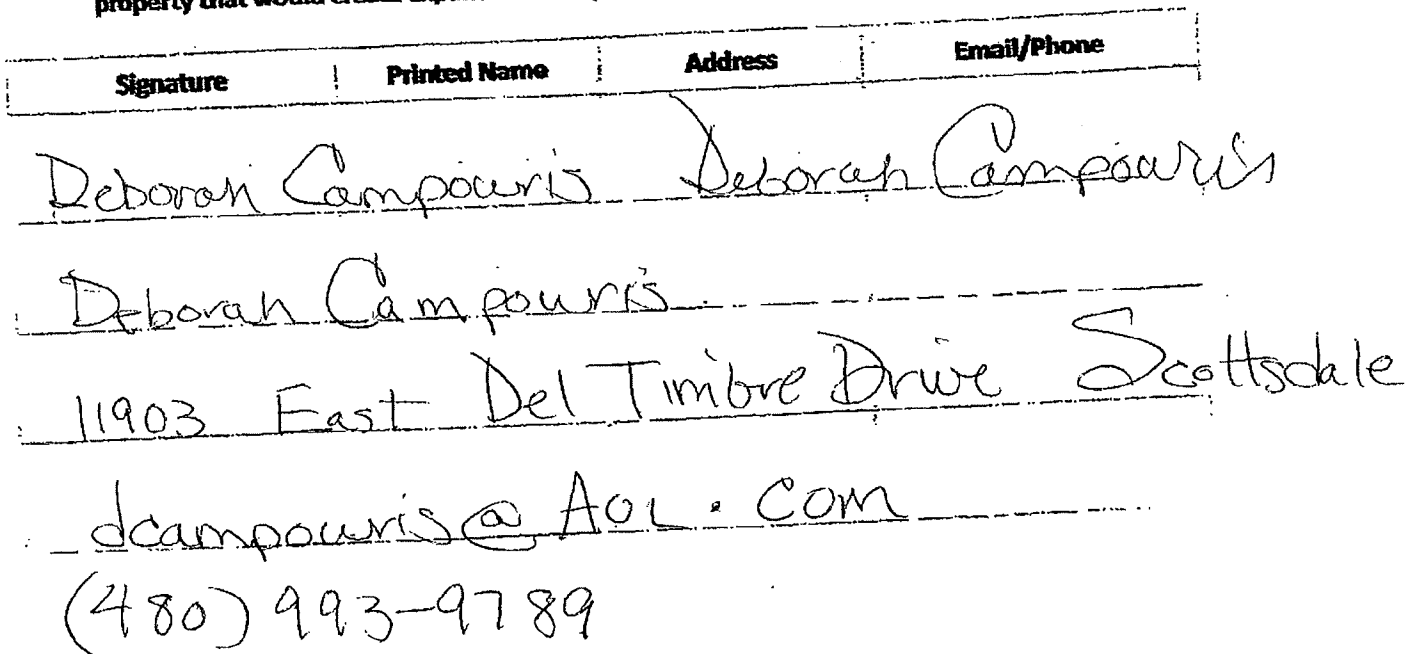 property that would
Signature Printed Name Address Email/Phone
Deborah Campouris Deborah Campouris
Deborah Campouris
11903 East Del Timbre Drive Scottsdale
dcampouris@AOL.COM
(480) 993-9789